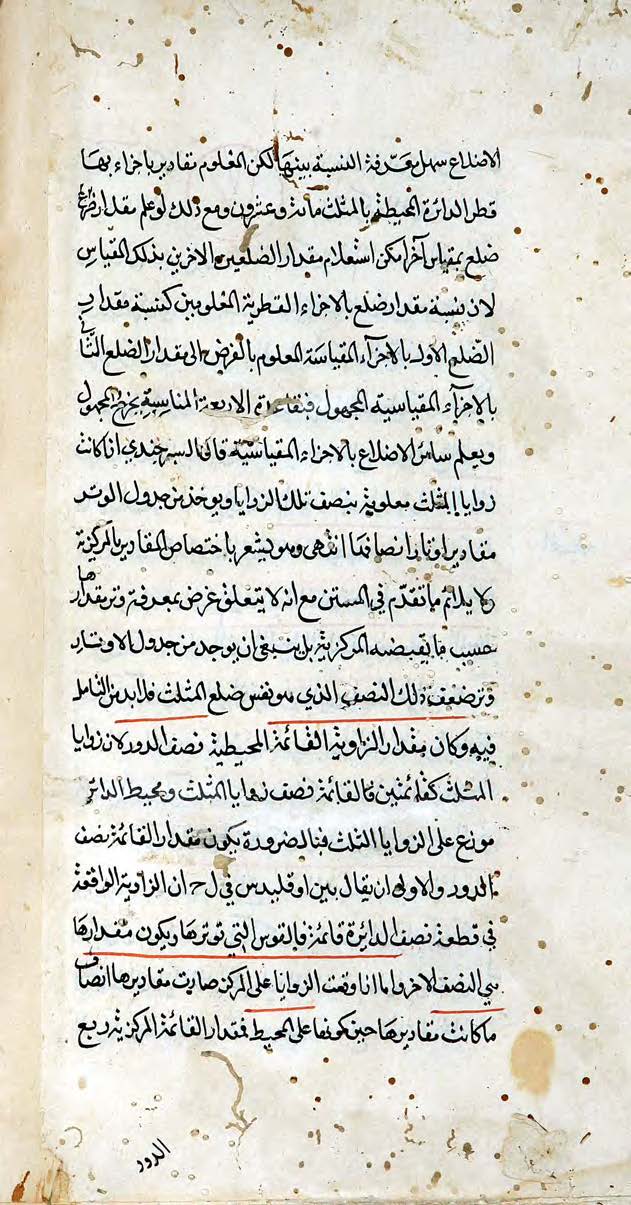 الاضلاع سهل معرفة النسبة بينها لكن المعلوم مقادير باجزاء بها
قطر الدائرة المحيطة بالمثلث مائة وعشرون ومع ذلك لو علم مقدار
ضلع بمقياس آخر امكن استعلام مقدار الضلعين الاخرين بذلك المقياس
لان نسبة مقدار ضلع بالاجزاء القطرية المعلومين كنسبة مقدار
الضلع الاول بالاجزاء المقياسة المعلوم بالفرض الى مقدار الضلع الثانى
بالاجزاء المقياسية المجهول فبقاعدة الاربعة المناسبة يخرج المجهول
ويعلم سائر الاضلاع بالاجزاء المقياسية قال البرجندي اذا كانت
زوايا المثلث معلومة ينصف تلك الزوايا ويوخذ من جدول الوتر
مقادير اوتار انصافها انتهى وهو يشعر باختصاص المقادير بالمركزية
ولا يلائم ما تقدم في المتن مع انه لا يتعلق غرض بمعرفة وتر مقدارها
حسب ما يقتضيه المركزية بل ينبغى ان يوجد من جدول الاوتار
وتر ضعف ذلك النصف الذي هو نفس ضلع المثلث فلابد من التامل
فيه وكان مقدار الزاوية القائمة المحيطية نصف الدور لان زوايا
المثلث كقائمتين فالقائمة نصف زوايا المثلث ومحيط الدائرة
موزع على الزوايا الثلث فبالضرورة يكون مقدار القائمة نصف
الدور والاولى ان يقال بين اوقليدس في ل ح ان الزاوية الواقعة
في قطعة نصف الدائرة قائمة فالقوس التي توترها ويكون مقدارها
هي النصف الاخر واما اذا وقعت الزوايا على المركز صارت مقاديرها انصاف
ما كانت مقاديرها حين كونها على المحيط فمقدار القائمة المركزية ربع
الدور